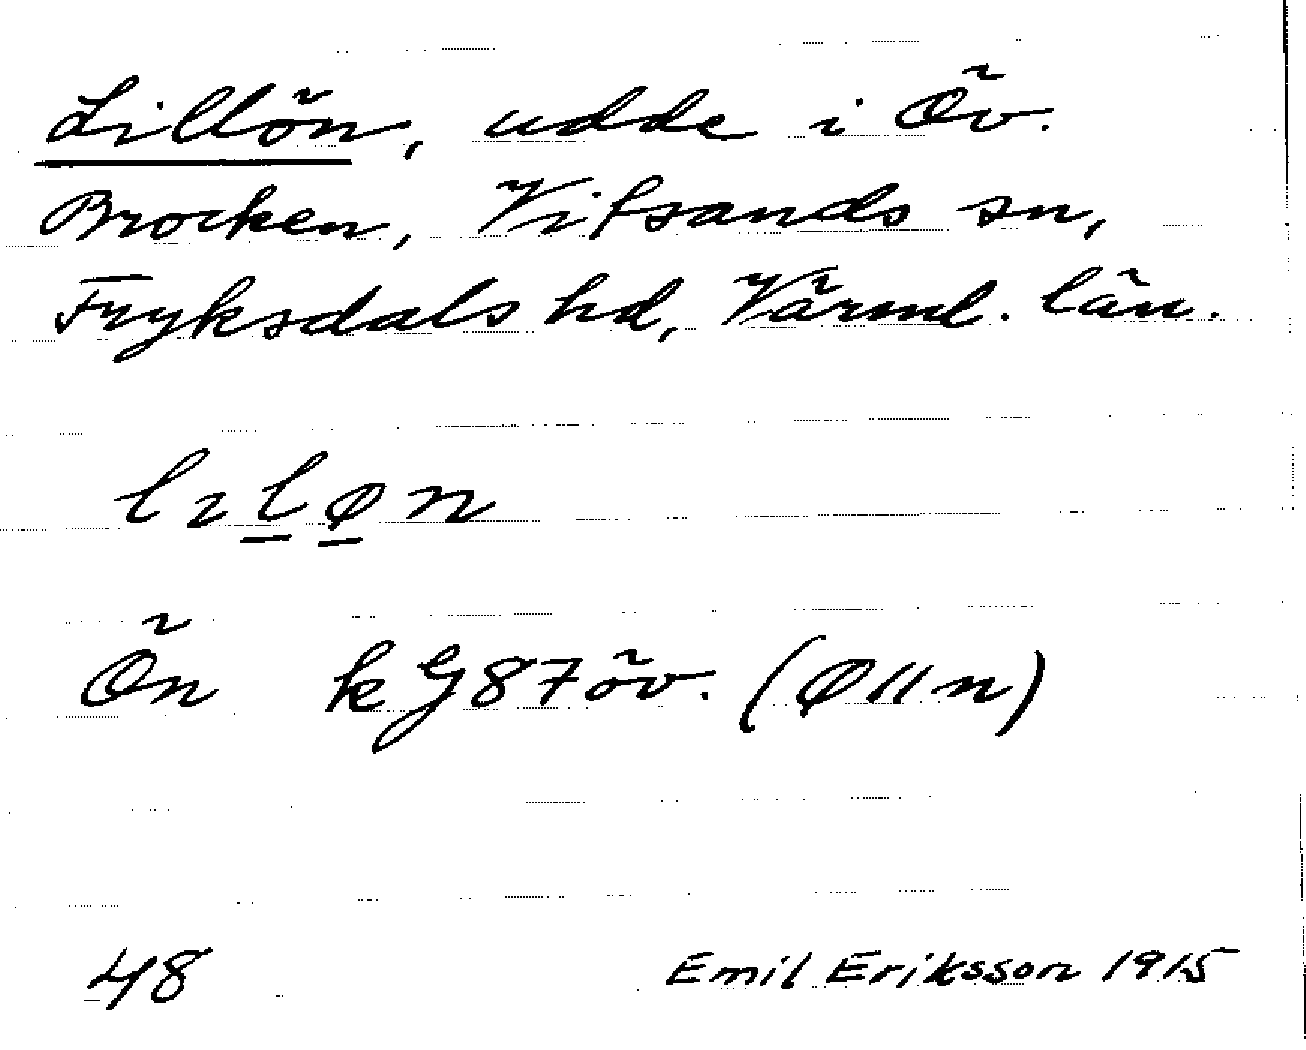 Lillön, udde i Öv.
Brocken, Vitsands sn,
Fryksdals hd, Värml. län.
lıløn
Ön kG87öv. (ØIIn)
48 Emil Eriksson 1915